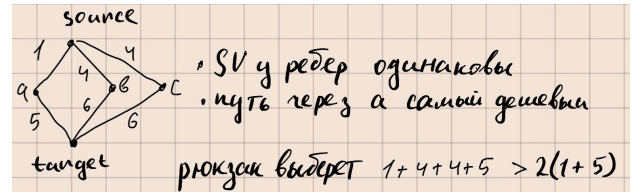 source
1 4
4
a в c
5 6 6
target
• SV у ребер одинаковы
• путь через а самый дешевый
рюкзак выберет 1+4+4+5 > 2(1+5)